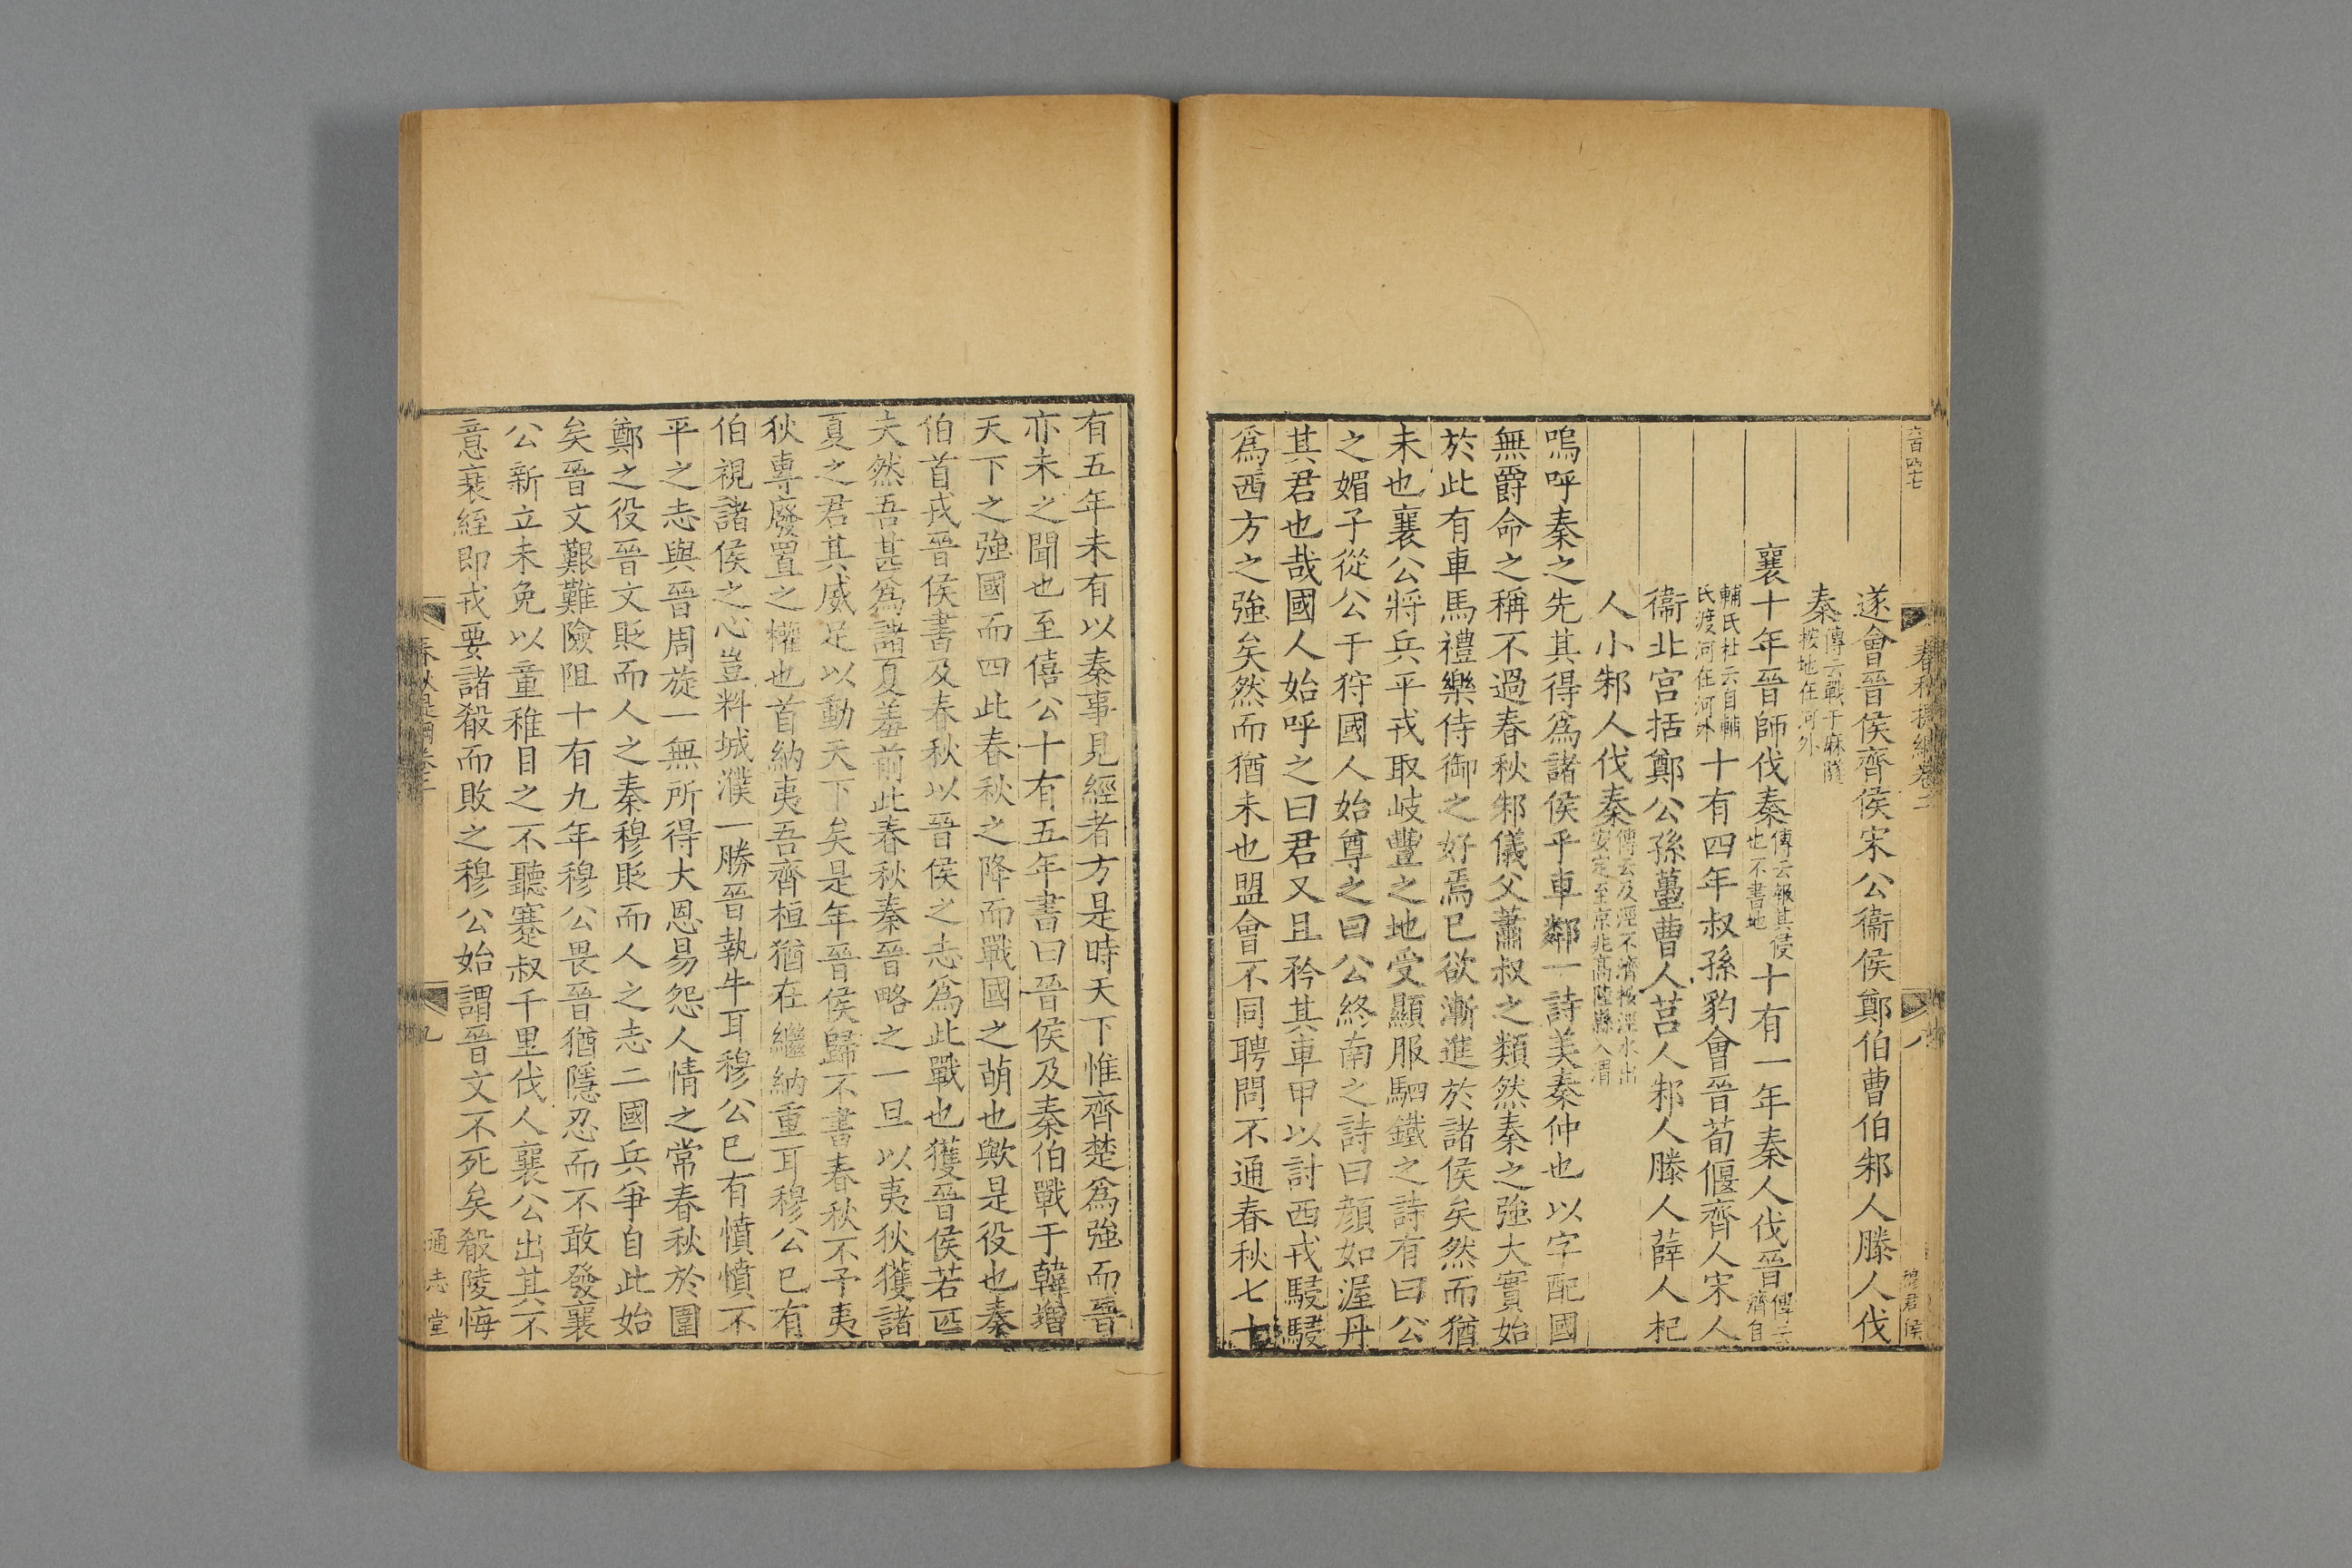 六百四七
春秋提綱卷二
八
穆君侯
遂會晉侯齊侯宋公衞侯鄭伯曹伯邾人滕人伐
秦傳云戰于麻隧按地在河外
襄十年晉師伐秦傳云報其侵也不書地十有一年秦人伐晉傳云濟自
輔氏杜云自輔氏渡河在河外十有四年叔孫豹會晉荀偃齊人宋人
衞北宮括鄭公孫蠆曹人莒人邾人滕人薛人杞
人小邾人伐秦傳云及涇不濟按涇水出安定至京兆高陸縣入渭
嗚呼秦之先其得爲諸侯乎車鄰一詩美秦仲也以字配國
無爵命之稱不過春秋邾儀父蕭叔之類然秦之強大實始
於此有車馬禮樂侍御之好焉已欲漸進於諸侯矣然而猶
未也襄公將兵平戎取岐豐之地受顯服駟鐵之詩有曰公
之媚子從公于狩國人始尊之曰公終南之詩曰顔如渥丹
其君也哉國人始呼之曰君又且矜其車甲以討西戎駸駸
爲西方之強矣然而猶未也盟會不同聘問不通春秋七十
有五年未有以秦事見經者方是時天下惟齊楚爲強而晉
亦未之聞也至僖公十有五年書曰晉侯及秦伯戰于韓增
天下之強國而四此春秋之降而戰國之萌也歟是役也秦
伯首戎晉侯書及春秋以晉侯之志爲此戰也獲晉侯若匹
夫然吾甚爲諸夏羞前此春秋秦晉略之一旦以夷狄獲諸
夏之君其威足以動天下矣是年晉侯歸不書春秋不予夷
狄專廢置之權也首納夷吾齊桓猶在繼納重耳穆公已有
伯視諸侯之心豈料城濮一勝晉執牛耳穆公已有憤憤不
平之志與晉周旋一無所得大恩易怨人情之常春秋於圍
鄭之役晉文貶而人之秦穆貶而人之志二國兵爭自此始
矣晉文艱難險阻十有九年穆公畏晉猶隱忍而不敢發襄
公新立未免以童稚目之不聽蹇叔千里伐人襄公出其不
意衰絰即戎要諸殽而敗之穆公始謂晉文不死矣殽陵悔
春秋提綱卷二
九
通志堂